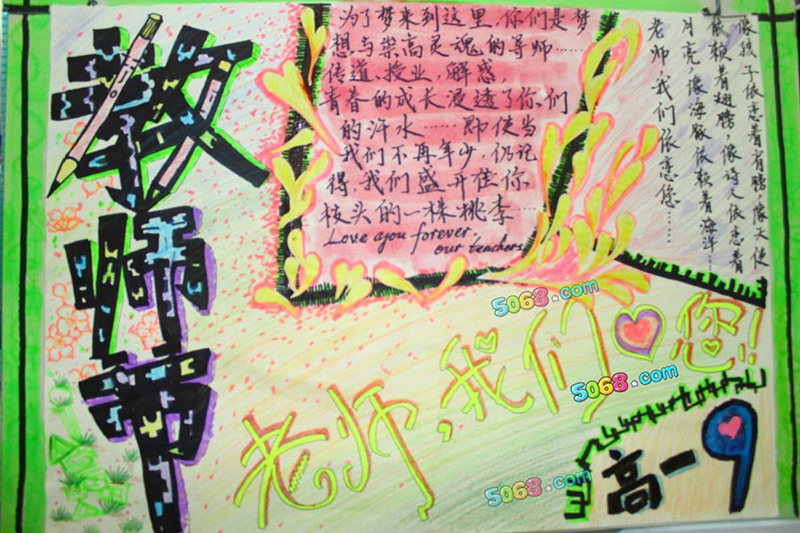 教师节
为了梦来到这里,你们是梦
想与崇高灵魂的导师……
传道,授业,解惑.
青春的成长浸透了你们
的汗水……即使当
我们不再年少,仍记
得,我们盛开在你
枝头的一株桃李
Love you forever,
our teachers
像孩子依恋着肩膀像天使
依赖着翅膀像诗人依恋着
月亮像海豚依赖着海洋…
老师,我们依恋您……
老师,我们您!!
高一9
5068.com
5068.com
5068.com